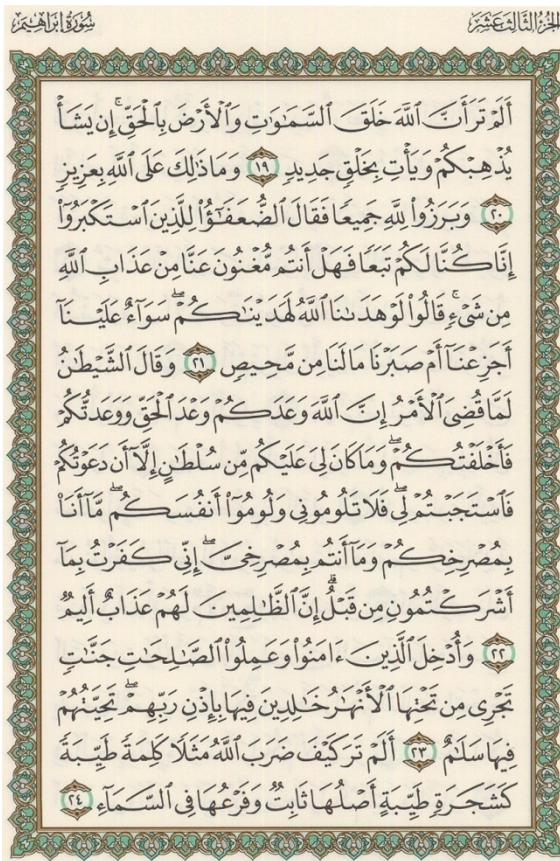 الجزء الثالث عشر
سورة إبراهيم
أَلَمْ تَرَ أَنَّ ٱللَّهَ خَلَقَ ٱلسَّمَٰوَٰتِ وَٱلْأَرْضَ بِٱلْحَقِّ ۚ إِن يَشَأْ
يُذْهِبْكُمْ وَيَأْتِ بِخَلْقٍ جَدِيدٍ ١٩ وَمَا ذَٰلِكَ عَلَى ٱللَّهِ بِعَزِيزٍ
٢٠ وَبَرَزُوا۟ لِلَّهِ جَمِيعًا فَقَالَ ٱلضُّعَفَٰٓؤُا۟ لِلَّذِينَ ٱسْتَكْبَرُوٓا۟
إِنَّا كُنَّا لَكُمْ تَبَعًا فَهَلْ أَنتُم مُّغْنُونَ عَنَّا مِنْ عَذَابِ ٱللَّهِ
مِن شَىْءٍ ۚ قَالُوا۟ لَوْ هَدَىٰنَا ٱللَّهُ لَهَدَيْنَٰكُمْ ۖ سَوَآءٌ عَلَيْنَآ
أَجَزِعْنَآ أَمْ صَبَرْنَا مَا لَنَا مِن مَّحِيصٍ ٢١ وَقَالَ ٱلشَّيْطَٰنُ
لَمَّا قُضِىَ ٱلْأَمْرُ إِنَّ ٱللَّهَ وَعَدَكُمْ وَعْدَ ٱلْحَقِّ وَوَعَدتُّكُمْ
فَأَخْلَفْتُكُمْ ۖ وَمَا كَانَ لِىَ عَلَيْكُم مِّن سُلْطَٰنٍ إِلَّآ أَن دَعَوْتُكُمْ
فَٱسْتَجَبْتُمْ لِى ۖ فَلَا تَلُومُونِى وَلُومُوٓا۟ أَنفُسَكُم ۖ مَّآ أَنَا۠
بِمُصْرِخِكُمْ وَمَآ أَنتُم بِمُصْرِخِىَّ ۖ إِنِّى كَفَرْتُ بِمَآ
أَشْرَكْتُمُونِ مِن قَبْلُ ۗ إِنَّ ٱلظَّٰلِمِينَ لَهُمْ عَذَابٌ أَلِيمٌ
٢٢ وَأُدْخِلَ ٱلَّذِينَ ءَامَنُوا۟ وَعَمِلُوا۟ ٱلصَّٰلِحَٰتِ جَنَّٰتٍ
تَجْرِى مِن تَحْتِهَا ٱلْأَنْهَٰرُ خَٰلِدِينَ فِيهَا بِإِذْنِ رَبِّهِمْ ۖ تَحِيَّتُهُمْ
فِيهَا سَلَٰمٌ ٢٣ أَلَمْ تَرَ كَيْفَ ضَرَبَ ٱللَّهُ مَثَلًا كَلِمَةً طَيِّبَةً
كَشَجَرَةٍ طَيِّبَةٍ أَصْلُهَا ثَابِتٌ وَفَرْعُهَا فِى ٱلسَّمَآءِ ٢٤